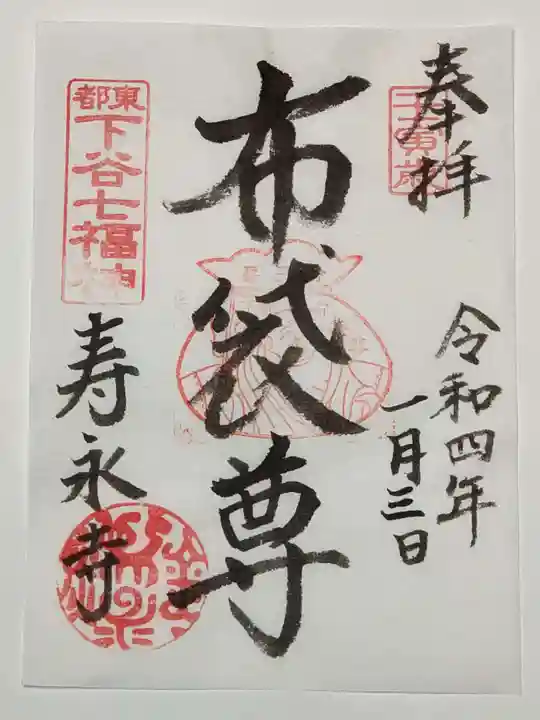 奉拝
壬寅歳
令和四年
一月三日
布袋尊
東都
下谷七福神
寿永寺